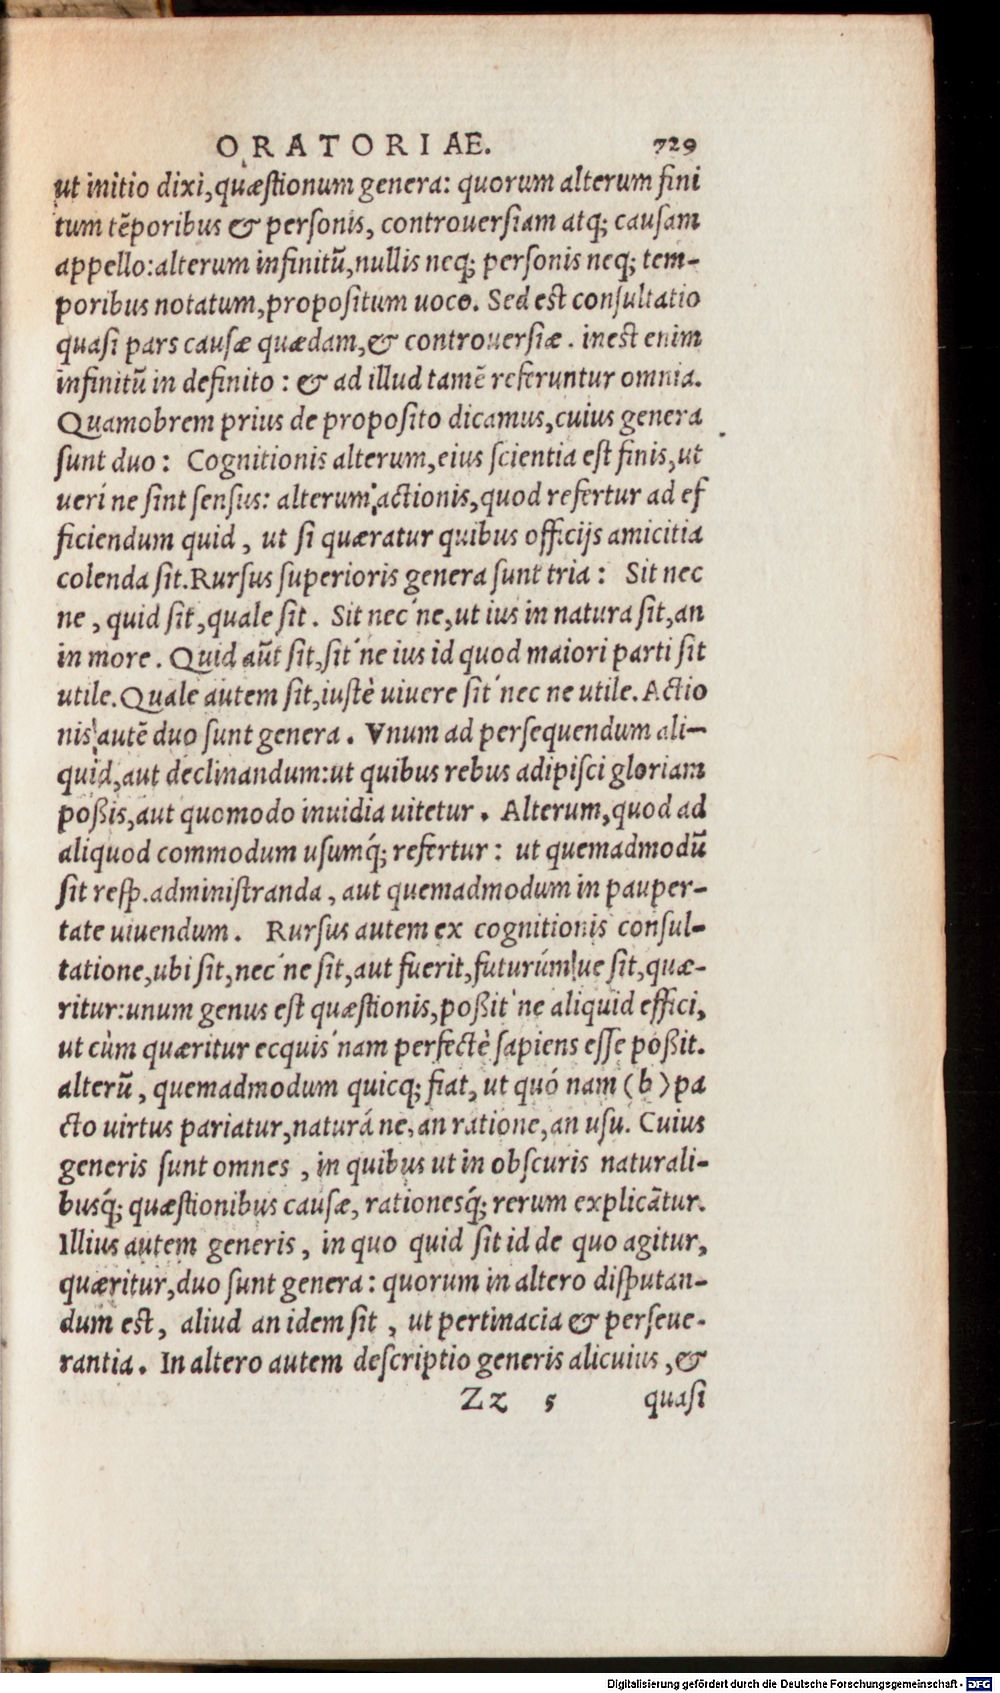 ORATORIAE. 729
ut initio dixi, quæstionum genera: quorum alterum fini
tum tẽporibus & personis, controuersiam atq; causam
appello: alterum infinitũ, nullis neq; personis neq; tem-
poribus notatum, propositum uoco. Sed est consultatio
quasi pars causæ quædam, & controuersiæ. inest enim
infinitũ in definito: & ad illud tamẽ referuntur omnia.
Quamobrem prius de proposito dicamus, cuius genera
sunt duo: Cognitionis alterum, eius scientia est finis, ut
ueri ne sint sensus: alterum actionis, quod refertur ad ef
ficiendum quid, ut si quæratur quibus officijs amicitia
colenda sit. Rursus superioris genera sunt tria: Sit nec
ne, quid sit, quale sit. Sit nec'ne, ut ius in natura sit, an
in more. Quid aũt sit, sit'ne ius id quod maiori parti sit
utile. Quale autem sit, iustè uiuere sit'nec ne utile. Actio
nis autẽ duo sunt genera. Vnum ad persequendum ali-
quid, aut declinandum: ut quibus rebus adipisci gloriam
poßis, aut quomodo inuidia uitetur. Alterum, quod ad
aliquod commodum usumq́; refertur: ut quemadmodũ
sit resp. administranda, aut quemadmodum in pauper-
tate uiuendum. Rursus autem ex cognitionis consul-
tatione, ubi sit, nec'ne sit, aut fuerit, futurúm ue sit, quæ-
ritur: unum genus est quæstionis, poßit'ne aliquid effici,
ut cùm quæritur ecquis'nam perfectè sapiens esse poßit.
alterũ, quemadmodum quicq; fiat, ut quó nam (b) pa
cto uirtus pariatur, naturá ne, an ratione, an usu. Cuius
generis sunt omnes, in quibus ut in obscuris naturali-
busq́; quæstionibus causæ, rationesq́; rerum explicãtur.
Illius autem generis, in quo quid sit id de quo agitur,
quæritur, duo sunt genera: quorum in altero disputan-
dum est, aliud an idem sit, ut pertinacia & perseue-
rantia. In altero autem descriptio generis alicuius, &
Zz 5 quasi
Digitalisierung gefördert durch die Deutsche Forschungsgemeinschaft - DFG